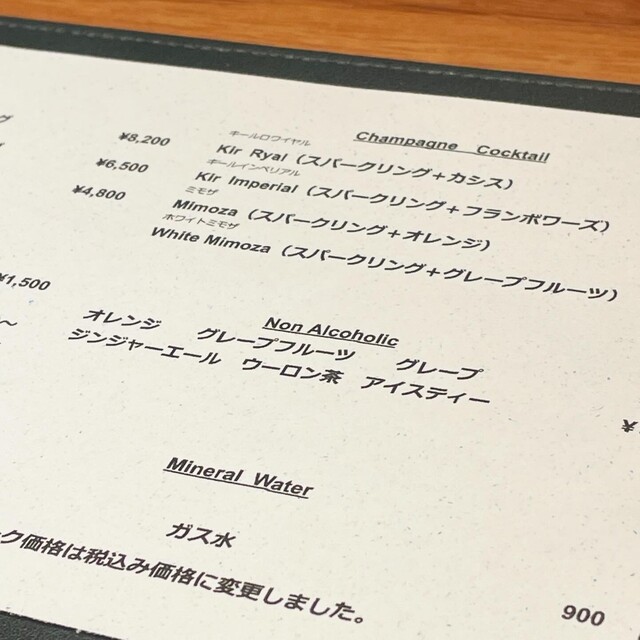 ¥8,200
¥6,500
¥4,800
¥1,500
Champagne Cocktail
キールロワイヤル
Kir Ryal (スパークリング+カシス)
キールインペリアル
Kir Imperial (スパークリング+フランボワーズ)
ミモザ
Mimoza (スパークリング+オレンジ)
ホワイトミモザ
White Mimoza (スパークリング+グレープフルーツ)
Non Alcoholic
オレンジ グレープフルーツ グレープ
ジンジャーエール ウーロン茶 アイスティー
Mineral Water
ガス水
900
ク価格は税込み価格に変更しました。